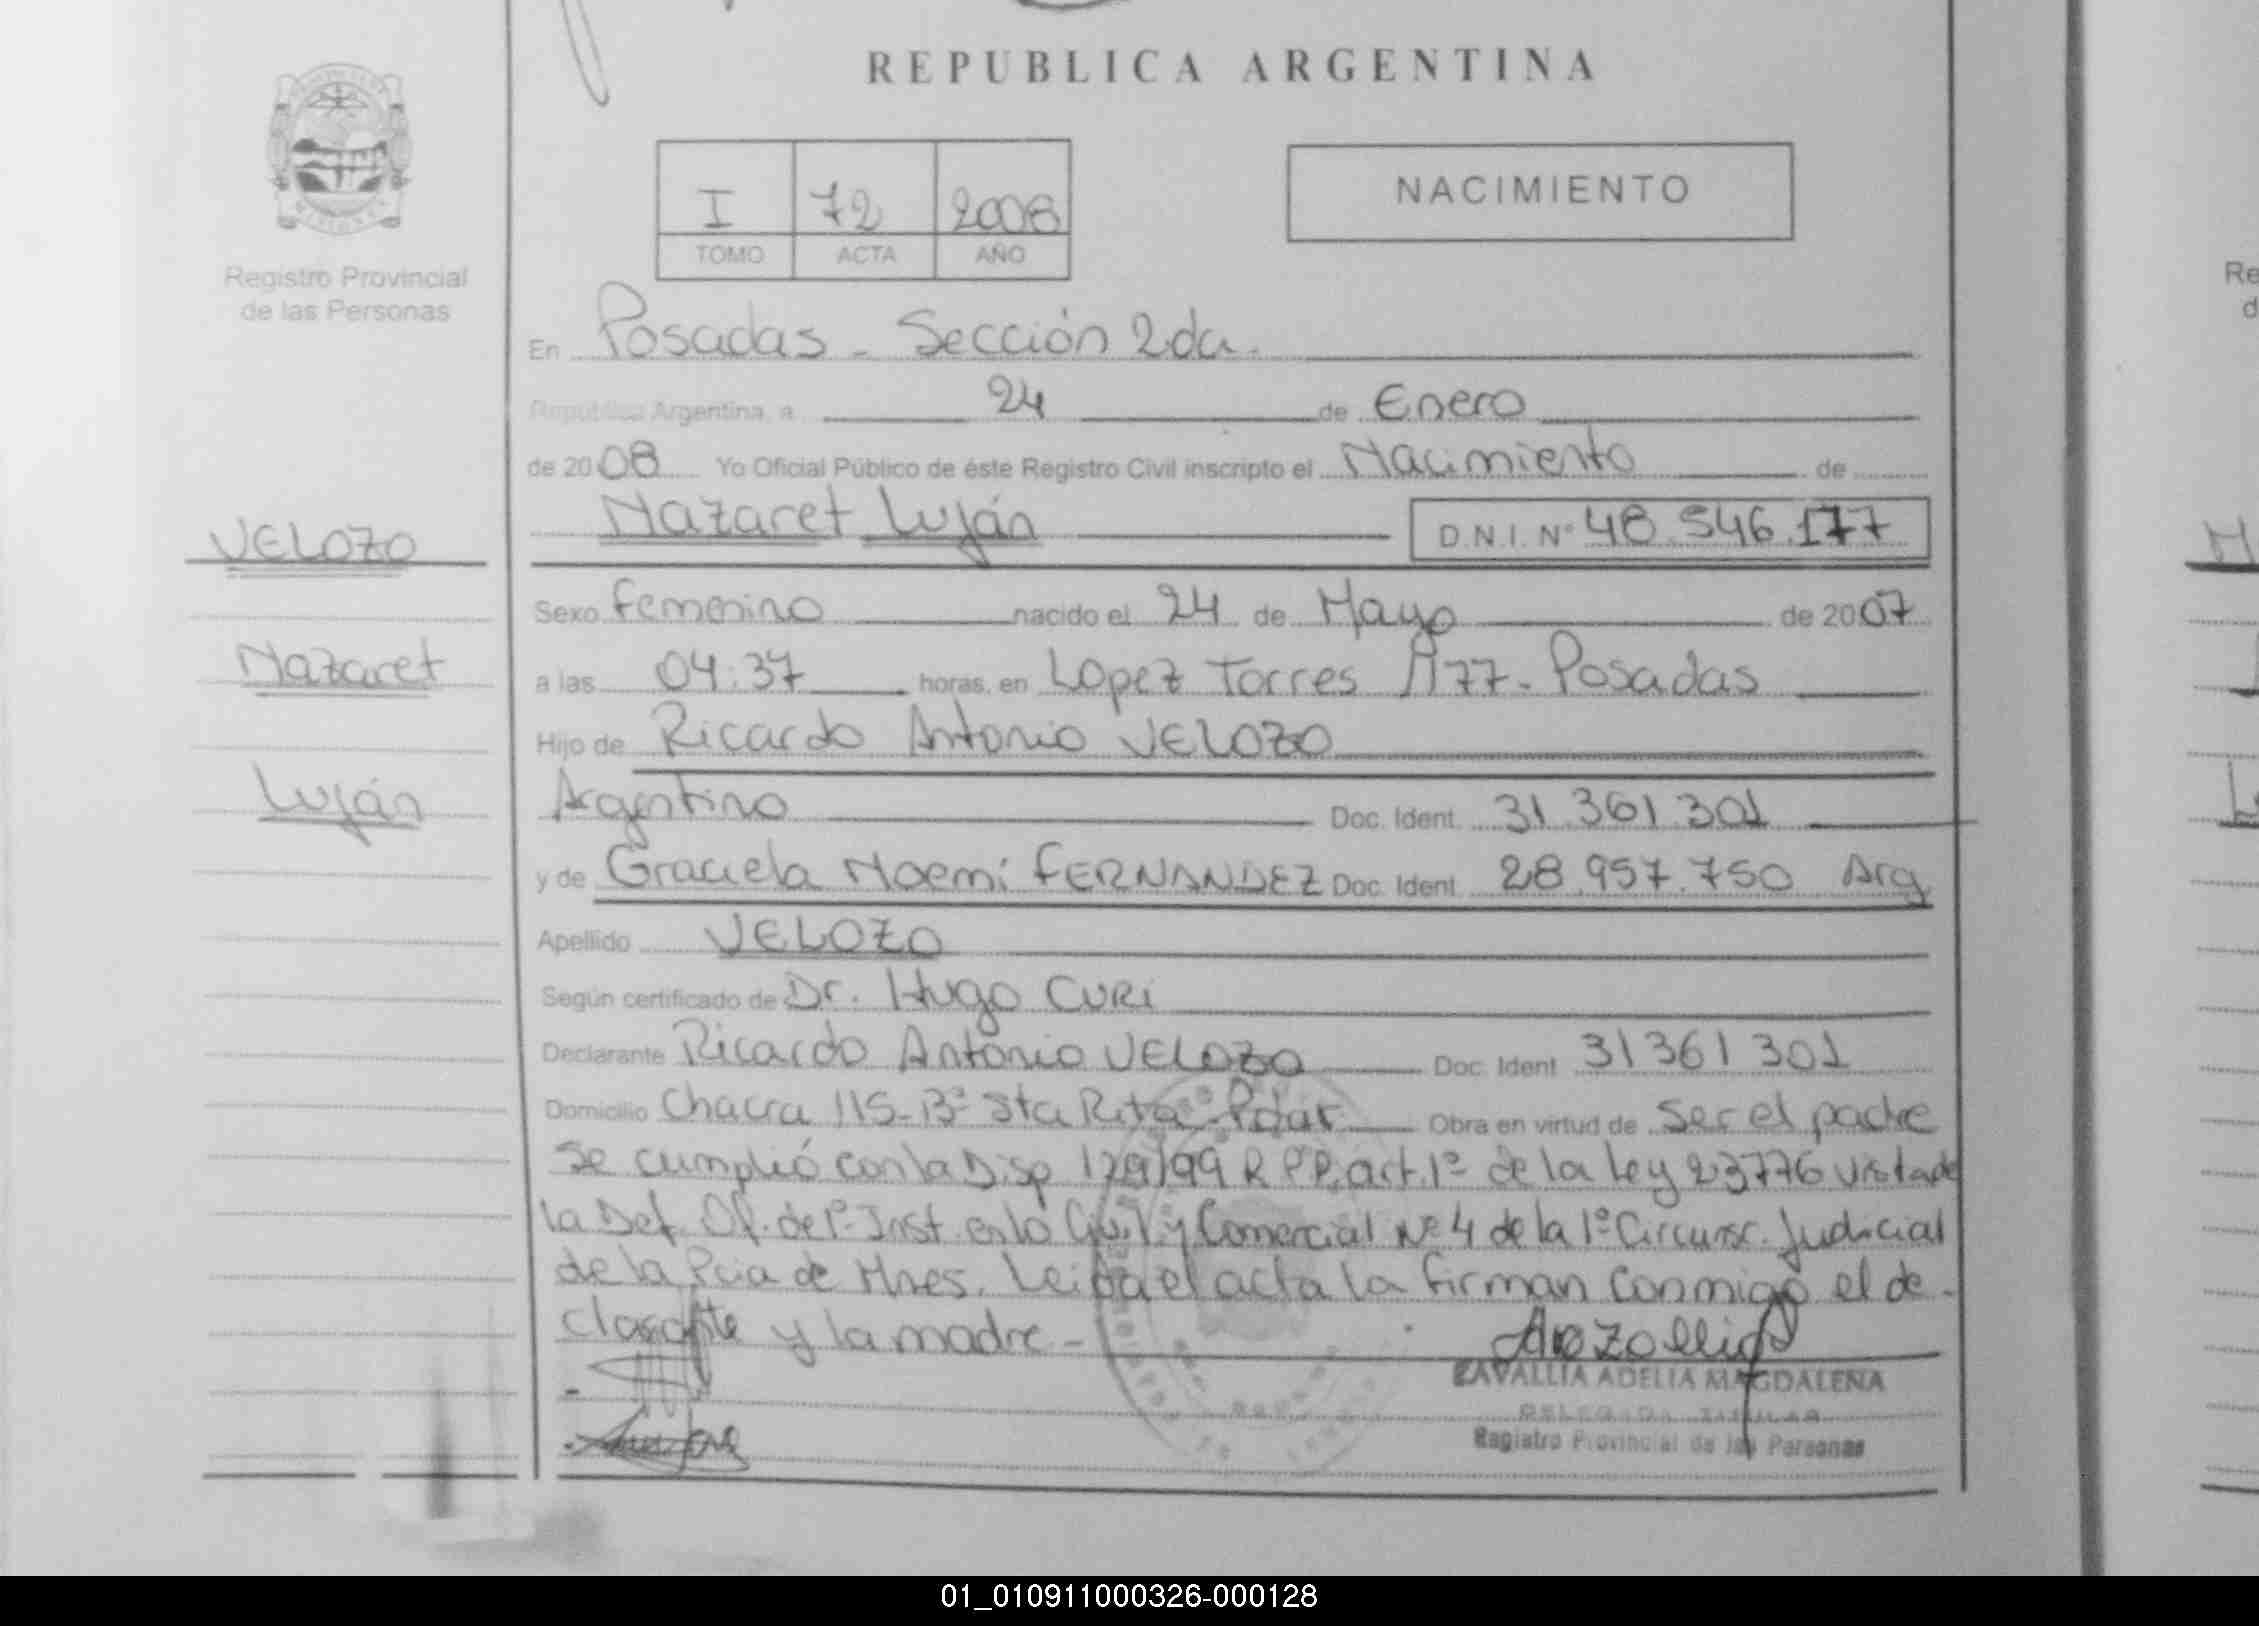 REPUBLICA ARGENTINA
I 72 2008
TOMO ACTA AÑO
NACIMIENTO
Registro Provincial
de las Personas
En Posadas - Sección 2da.
República Argentina, a 24 de Enero
de 2008 Yo Oficial Público de éste Registro Civil inscripto el Nacimiento de
Nazaret Luján D.N.I. Nº 48.546.177
VELOZO
Nazaret
Luján
Sexo femenino nacido el 24 de Mayo de 2007
a las 04:37 horas, en Lopez Torres 1177 - Posadas
Hijo de Ricardo Antonio VELOZO
Argentino Doc. Ident. 31.361.301
y de Graciela Noemí FERNANDEZ Doc. Ident. 28.957.750 Arg
Apellido VELOZO
Según certificado de Dr. Hugo CURI
Declarante Ricardo Antonio VELOZO Doc. Ident 31 361 301
Domicilio Chacra 115-Bº Sta Rita - Pdas Obra en virtud de Ser el padre
Se cumplió con la Disp 129/99 R.P.P. art. 1º de la ley 23776 vista de
la Def. Of. de 1º Inst. en lo Civil y Comercial Nº 4 de la 1º Circunsc. Judicial
de la Pcia de Mnes. Leida el acta la firman conmigo el de-
clarante y la madre -
ZAVALLIA ADELIA MAGDALENA
DELEGADA TITULAR
Registro Provincial de las Personas
Re
d
01_010911000326-000128